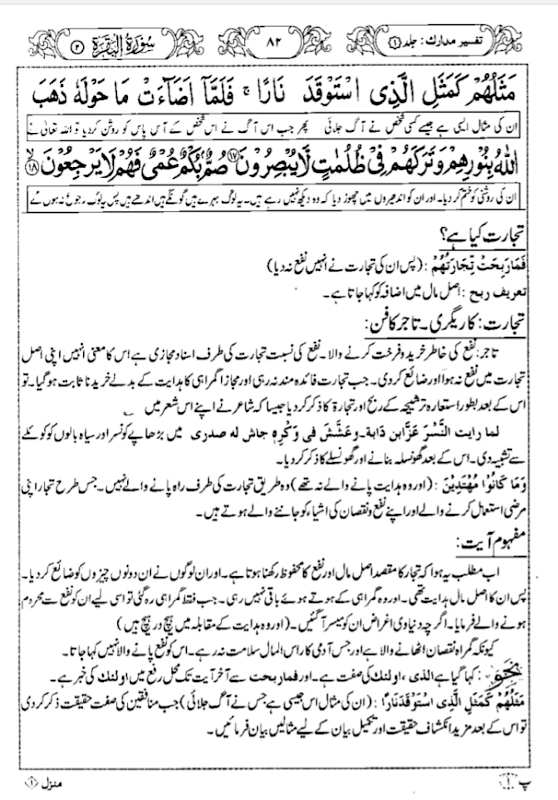 تفسیر مدارک: جلد ①
۸۲
سُوْرَةُ الْبَقَرَة ②
مَثَلُهُمْ كَمَثَلِ الَّذِی اسْتَوْقَدَ نَارًا ۚ فَلَمَّاۤ اَضَآءَتْ مَا حَوْلَهٗ ذَهَبَ
ان کی مثال ایسی ہے جیسے کسی شخص نے آگ جلائی پھر جب اس آگ نے اس شخص کے آس پاس کو روشن کر دیا تو اللہ تعالیٰ نے
اللّٰهُ بِنُوْرِهِمْ وَتَرَكَهُمْ فِیْ ظُلُمٰتٍ لَّا یُبْصِرُوْنَ ⑰ صُمٌّۢ بُكْمٌ عُمْیٌ فَهُمْ لَا یَرْجِعُوْنَ ⑱
ان کی روشنی کو ختم کر دیا۔ اور ان کو اندھیروں میں چھوڑ دیا کہ وہ دیکھ نہیں رہے ہیں۔ یہ لوگ بہرے ہیں گونگے ہیں اندھے ہیں پس یہ لوگ رجوع نہ ہوں گے
تجارت کیا ہے؟
فَمَا رَبِحَتْ تِّجَارَتُهُمْ : (پس ان کی تجارت نے انہیں نفع نہ دیا)
تعریف ربح: اصل مال میں اضافہ کو کہا جاتا ہے۔
تجارت: کاریگری۔ تاجر کا فن:
تاجر: نفع کی خاطر خرید و فروخت کرنے والا۔ نفع کی نسبت تجارت کی طرف اسناد مجازی ہے اس کا معنی انہیں اپنی اصل
تجارت میں نفع نہ ہوا اور ضائع کر دی۔ جب تجارت فائدہ مند نہ رہی اور مجازاً گمراہی کا ہدایت کے بدلے خریدنا ثابت ہو گیا۔ تو
اس کے بعد بطور استعارہ ترشیحہ کے ربح اور تجارة کا ذکر کر دیا جیسا کہ شاعر نے اپنے اس شعر میں
لما رايت النَّسْرَ عَزَّ ابن دَابة۔ وعشَّشَ فى وَكْرِهِ جاش له صدری میں بڑھاپے کو نسر اور سیاہ بالوں کو کوئے
سے تشبیہ دی۔ اس کے بعد گھونسلہ بنانے اور گھونسلے کا ذکر کر دیا۔
وَمَا كَانُوْا مُهْتَدِیْنَ : (اور وہ ہدایت پانے والے نہ تھے) وہ طریق تجارت کی طرف راہ پانے والے نہیں۔ جس طرح تجار اپنی
مرضی استعمال کرنے والے اور اپنے نفع و نقصان کی اشیاء کو جاننے والے ہوتے ہیں۔
مفہوم آیت:
اب مطلب یہ ہوا کہ تجار کا مقصد اصل مال اور نفع کا محفوظ رکھنا ہوتا ہے۔ اور ان لوگوں نے ان دونوں چیزوں کو ضائع کر دیا۔
پس ان کا اصل مال ہدایت تھی۔ اور وہ گمراہی کے ہوتے ہوئے باقی نہیں رہی۔ جب فقط گمراہی رہ گئی تو اسی لیے ان کو نفع سے محروم
ہونے والے فرمایا۔ اگرچہ دنیاوی اغراض ان کو میسر آ گئیں۔ (اور وہ ہدایت کے مقابلہ میں ہیچ در ہیچ ہیں)
کیونکہ گمراہ نقصان اٹھانے والا ہے اور جس آدمی کا راس المال سلامت نہ رہے۔ اس کو نفع پانے والا نہیں کہا جاتا۔
نحو: کہا گیا ہے الذی، اولئك کی صفت ہے۔ اور فما ربحت سے آخر آیت تک محل رفع میں اولئك کی خبر ہے۔
مَثَلُهُمْ كَمَثَلِ الَّذِی اسْتَوْقَدَ نَارًا : (ان کی مثال اس جیسی ہے جس نے آگ جلائی) جب منافقین کی صفت حقیقت ذکر کر دی
تو اس کے بعد مزید انکشاف حقیقت اور تکمیل بیان کے لیے مثالیں بیان فرمائیں۔
پ ①
منزل ①